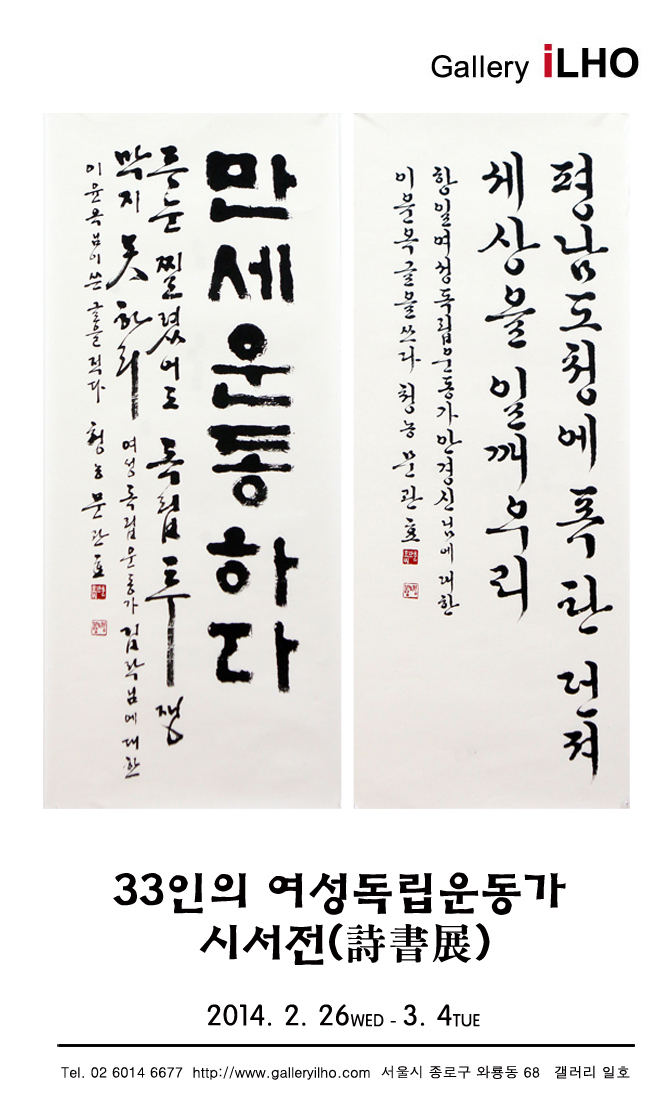 Gallery iLHO
만세운동하다
두눈 찔렸어도 독립투쟁
막지 못 하리 여성독립운동가 김락님에 대한
이윤옥님이 쓴 글을 적다 청농 문관효
평남도청에 폭탄 던져
세상을 일깨우리
항일여성독립운동가 안경신님에 대한
이윤옥 글을 쓰다 청농 문관효
33인의 여성독립운동가
시서전(詩書展)
2014. 2. 26WED - 3. 4TUE
Tel. 02 6014 6677 http://www.galleryilho.com 서울시 종로구 와룡동 68 갤러리 일호